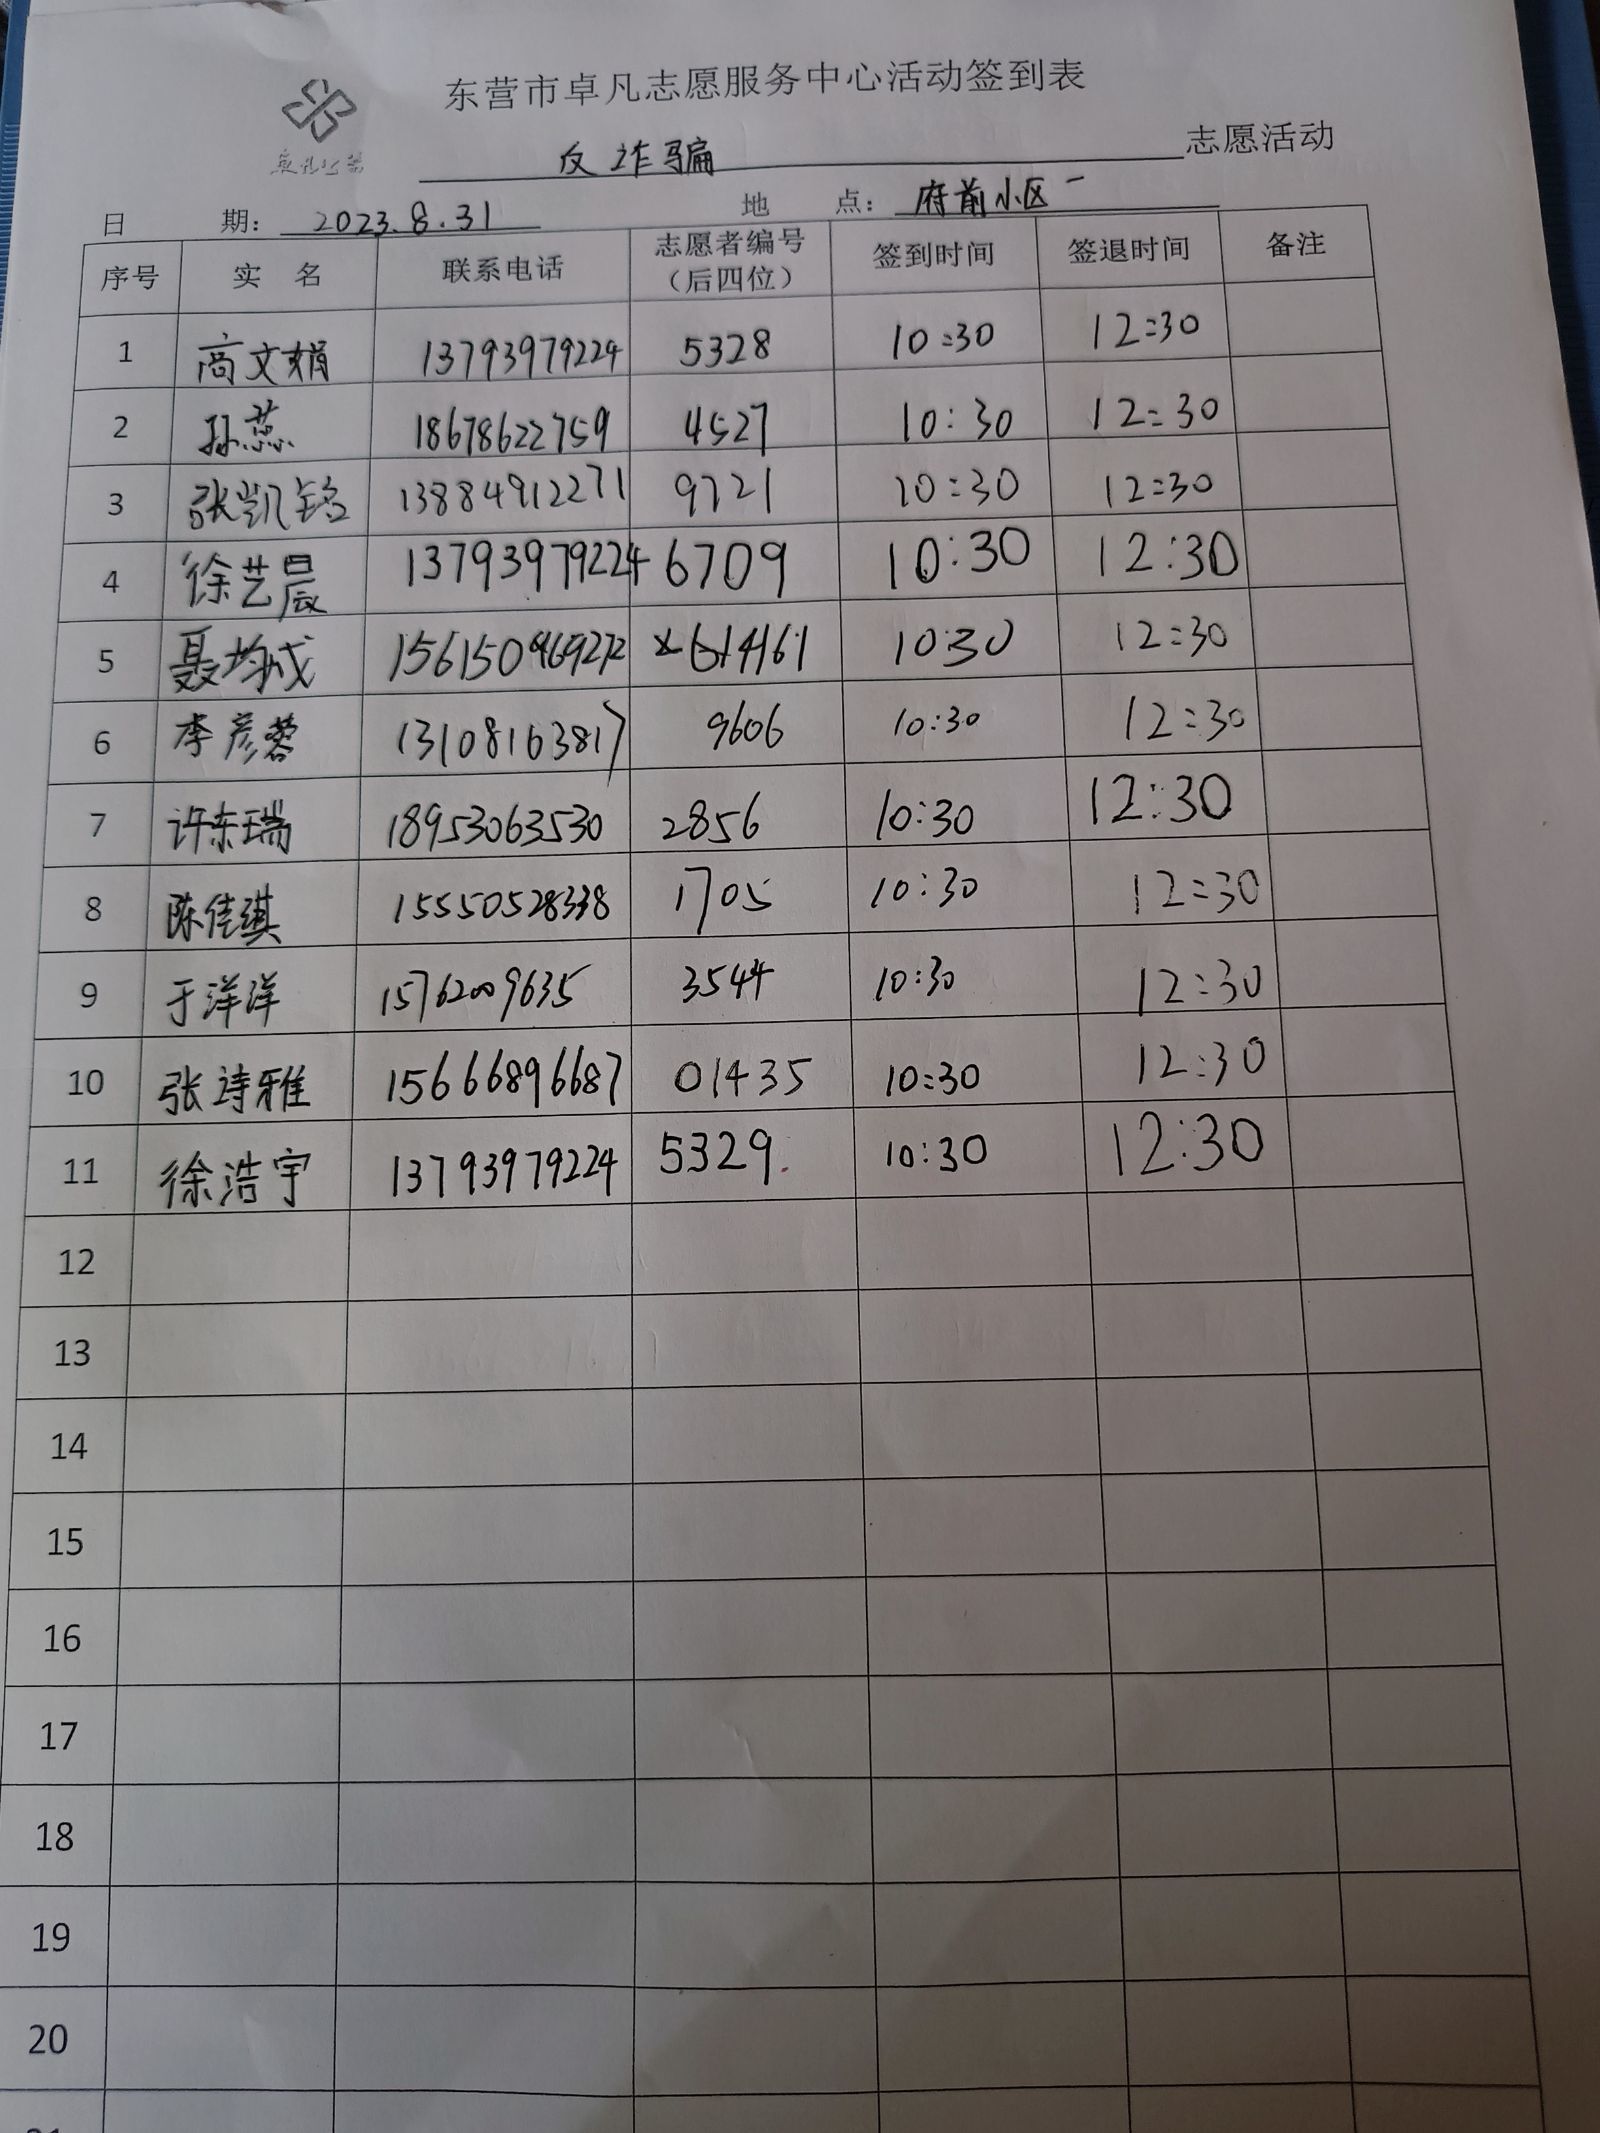 东营市卓凡志愿服务中心活动签到表
卓凡公益
反诈骗 志愿活动
日 期： 2023.8.31 地 点： 府前小区
序号 实 名 联系电话 志愿者编号（后四位） 签到时间 签退时间 备注
1 商文娟 13793979224 5328 10:30 12:30
2 孙蕊 18678622759 4527 10:30 12:30
3 张凯铭 13884912271 9721 10:30 12:30
4 徐艺晨 13793979224 6709 10:30 12:30
5 聂均成 10:30 12:30
6 李彦蓉 13108163817 9606 10:30 12:30
7 许东瑞 18953063530 2856 10:30 12:30
8 陈佳琪 15550528338 1705 10:30 12:30
9 于洋洋 15762009635 3544 10:30 12:30
10 张诗雅 15666896687 01435 10:30 12:30
11 徐浩宇 13793979224 5329. 10:30 12:30
12
13
14
15
16
17
18
19
20